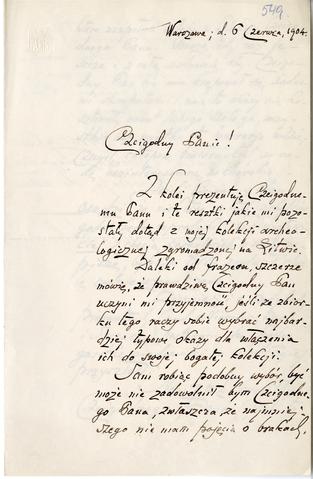 549.
Warszawa, d. 6 Czerwca, 1904.
Czcigodny Panie!
Z kolei prezentuję Czcigodne-
mu Panu i te resztki jakie mi pozo-
stały dotąd z mojej kolekcji archeo-
logicznej zgromadzonej na Litwie.
Daleki od frazesu, szczerze
mówię, że prawdziwą Czcigodny Pan
uczyni mi przyjemność, jeśli ze zbior-
ku tego raczy sobie wybrać najbar-
dziej typowe okazy dla włączenia
ich do swojej bogatej kolekcji.
Sam robiąc podobny wybór, być
może nie zadowolnił bym Czcigodne-
go Pana, zwłaszcza że najmniej-
szego nie mam pojęcia o brakach,